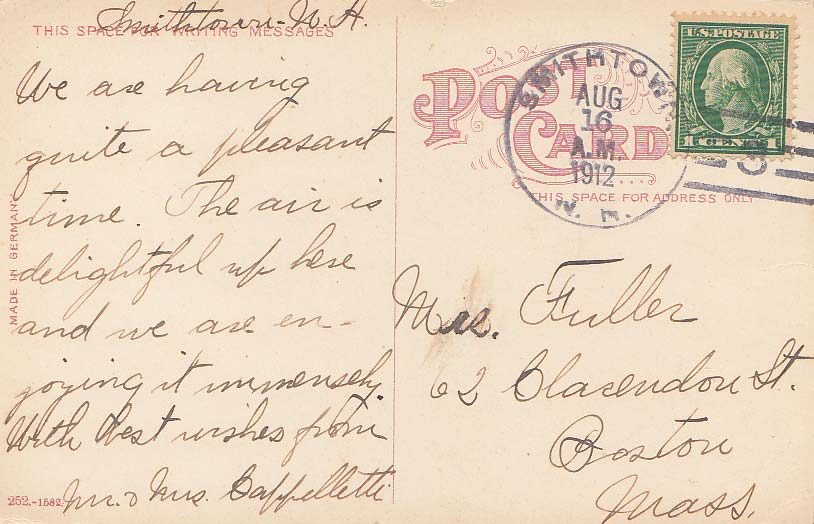 Smithtown - N. H.
THIS SPACE FOR WRITING MESSAGES
We are having
quite a pleasant
time. The air is
delightful up here
and we are en-
joying it immensely.
With best wishes from
Mr. & Mrs. Cappelletti
MADE IN GERMANY
252.-1582.
POST CARD
SMITHTOWN
AUG
16
A.M.
1912
N. H.
U.S. POSTAGE
1 CENT 1
THIS SPACE FOR ADDRESS ONLY
Mrs. Fuller
62 Clarendon St.
Boston
Mass.